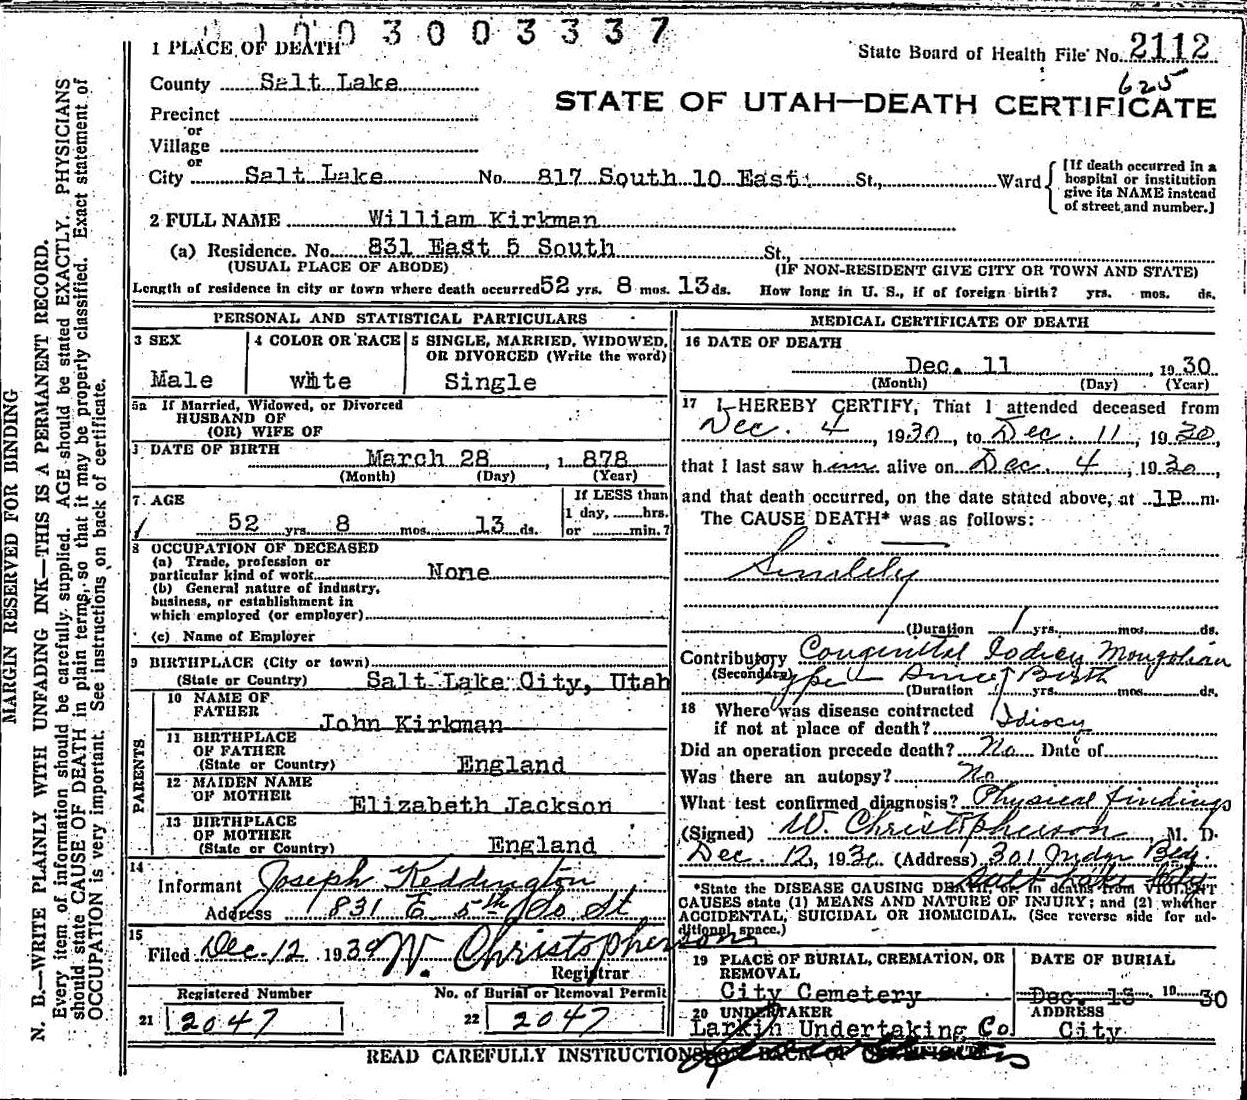 1003003337
1 PLACE OF DEATH
State Board of Health File No. 2112
625
County Salt Lake
STATE OF UTAH—DEATH CERTIFICATE
Precinct
or
Village
or
City Salt Lake No. 817 South 10 East St., Ward
[If death occurred in a hospital or institution give its NAME instead of street and number.]
2 FULL NAME William Kirkman
(a) Residence. No. 831 East 5 South St.,
(USUAL PLACE OF ABODE) (IF NON-RESIDENT GIVE CITY OR TOWN AND STATE)
Length of residence in city or town where death occurred 52 yrs. 8 mos. 13 ds. How long in U. S., if of foreign birth? yrs. mos. ds.
PERSONAL AND STATISTICAL PARTICULARS
3 SEX
Male
4 COLOR OR RACE
white
5 SINGLE, MARRIED, WIDOWED, OR DIVORCED (Write the word)
Single
5a If Married, Widowed, or Divorced
HUSBAND OF
(OR) WIFE OF
DATE OF BIRTH
March 28, 1878
(Month) (Day) (Year)
7. AGE
52 yrs. 8 mos. 13 ds.
If LESS than
1 day, hrs.
or min.?
8 OCCUPATION OF DECEASED
(a) Trade, profession or
particular kind of work None
(b) General nature of industry,
business, or establishment in
which employed (or employer)
(c) Name of Employer
9 BIRTHPLACE (City or town)
(State or Country) Salt Lake City, Utah
PARENTS
10 NAME OF
FATHER John Kirkman
11 BIRTHPLACE
OF FATHER
(State or Country) England
12 MAIDEN NAME
OF MOTHER Elizabeth Jackson
13 BIRTHPLACE
OF MOTHER
(State or Country) England
14
Informant Joseph Keddington
Address 831 E 5th So St.
15
Filed Dec. 12 1930 W. Christopherson
Registrar
Registered Number
21 2047
No. of Burial or Removal Permit
22 2047
MEDICAL CERTIFICATE OF DEATH
16 DATE OF DEATH
Dec. 11, 1930
(Month) (Day) (Year)
17 I HEREBY CERTIFY, That I attended deceased from
Dec. 4, 1930, to Dec. 11, 1930,
that I last saw him alive on Dec. 4, 1930,
and that death occurred, on the date stated above, at 1P m.
The CAUSE DEATH* was as follows:
Sinility
(Duration 1 yrs. mos. ds.
Contributory Congenital Idiocy Mongolian
(Secondary) type - Since Birth
(Duration yrs. mos. ds.
18 Where was disease contracted
if not at place of death? Idiocy
Did an operation precede death? No Date of
Was there an autopsy? No
What test confirmed diagnosis? Physical findings
(Signed) W. Christopherson, M. D.
Dec. 12, 1930 (Address) 301 Bldg.
Salt Lake City
*State the DISEASE CAUSING DEATH, or in deaths from VIOLENT
CAUSES state (1) MEANS AND NATURE OF INJURY; and (2) whether
ACCIDENTAL, SUICIDAL OR HOMICIDAL. (See reverse side for ad-
ditional space.)
19 PLACE OF BURIAL, CREMATION, OR
REMOVAL
City Cemetery
DATE OF BURIAL
Dec. 13 1930
20 UNDERTAKER
Larkin Undertaking Co.
ADDRESS
City
READ CAREFULLY INSTRUCTIONS ON BACK OF CERTIFICATE
MARGIN RESERVED FOR BINDING
N. B.—WRITE PLAINLY WITH UNFADING INK—THIS IS A PERMANENT RECORD.
Every item of information should be carefully supplied. AGE should be stated EXACTLY. PHYSICIANS
should state CAUSE OF DEATH in plain terms, so that it may be properly classified. Exact statement of
OCCUPATION is very important. See instructions on back of certificate.